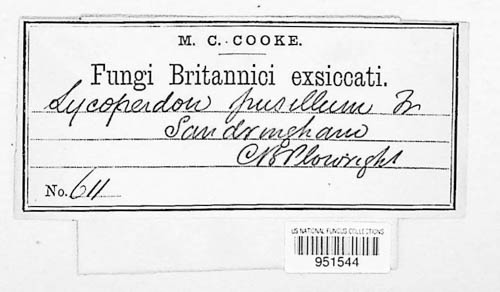 M. C. COOKE.
Fungi Britannici exsiccati.
Lycoperdon pusillum Fr
Sandringham
CB Plowright
No. 611
US NATIONAL FUNGUS COLLECTIONS
951544